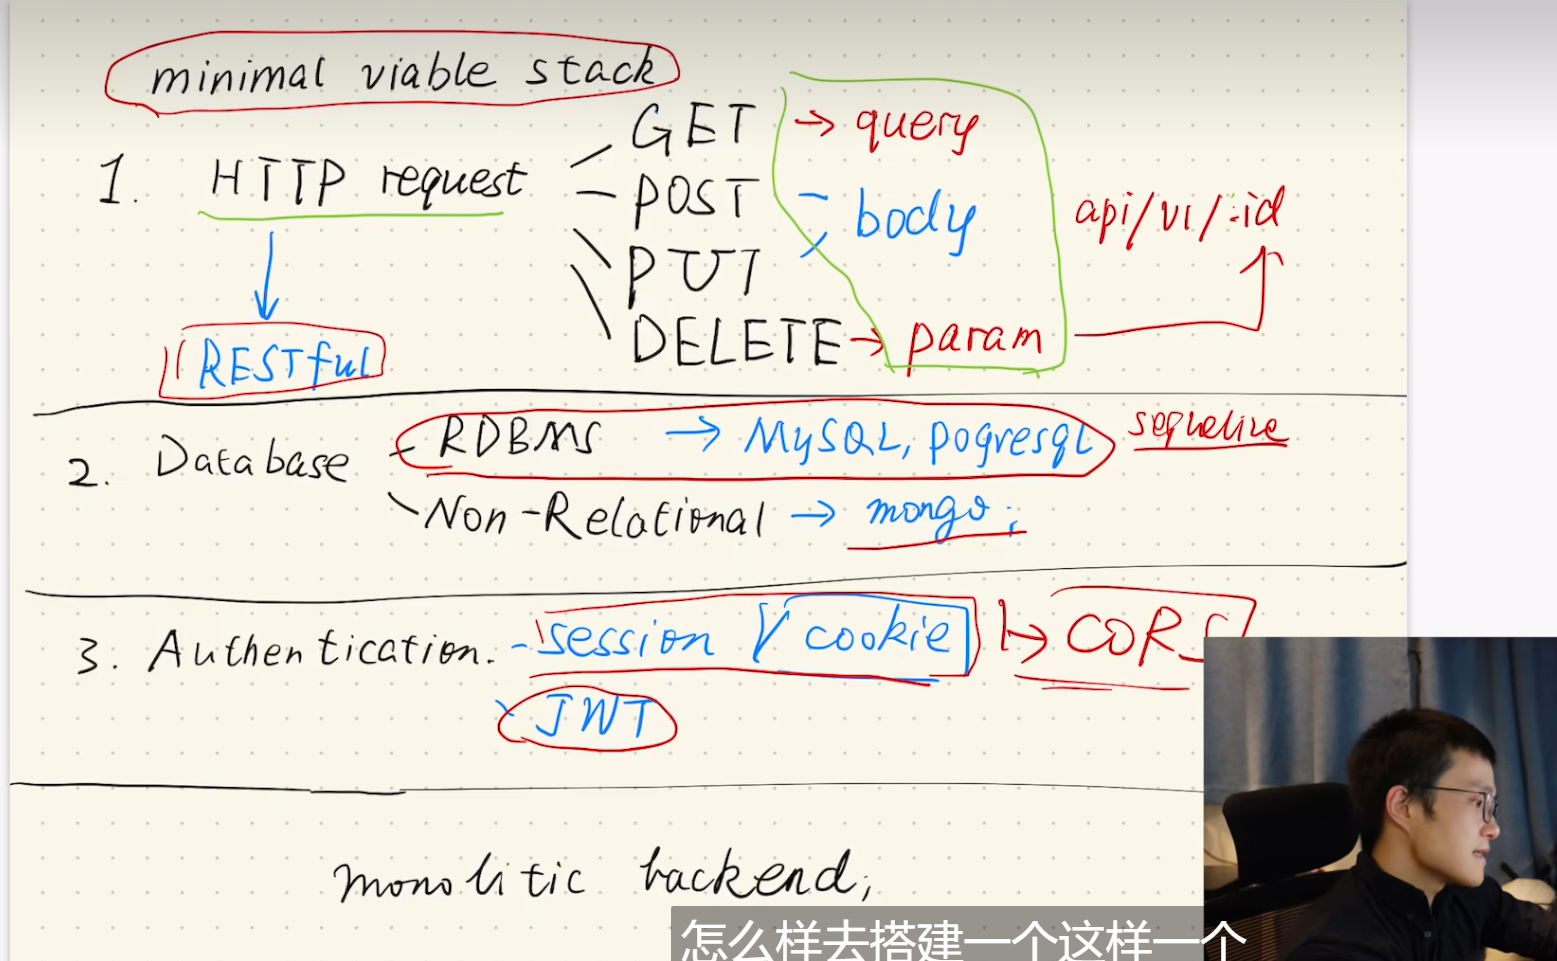 minimal viable stack
1. HTTP request
GET → query
POST
body
PUT
DELETE → param
api/v1/:id
RESTful
2. Database
RDBMS → MySQL, pogresql
sequelize
Non-Relational → mongo;
3. Authentication.
session / cookie → CORS
JWT
monolitic backend;
怎么样去搭建一个这样一个